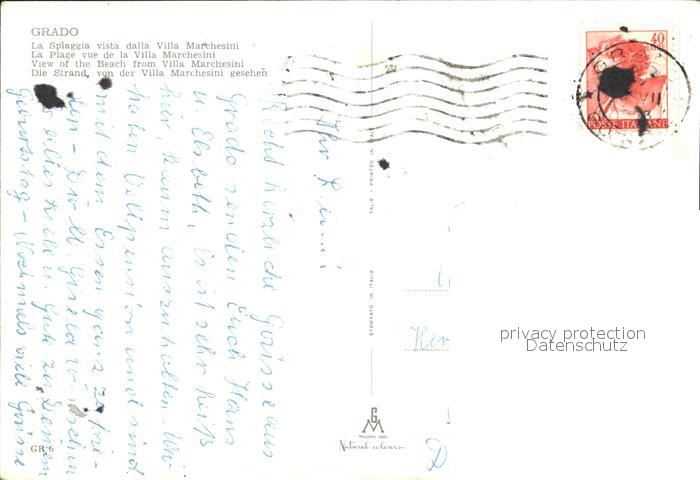 GRADO
La Spiaggia vista dalla Villa Marchesini
La Plage vue de la Villa Marchesini
View of the Beach from Villa Marchesini
Die Strand, von der Villa Marchesini gesehen
40
POSTE ITALIANE
Recht herzliche Grüsse aus
Grado senden Euch Hans
u. Elsbeth. Es ist sehr heiß
hier, kaum auszuhalten. Wir
haben Vollpension und sind
mit dem Essen ganz zufrie-
den
alles Liebe u. Gute zu Deinem
Geburtstag - Nochmals viele Grüsse
Ihr
ITALIE - PRINTED IN
STAMPATO IN ITALIA
Her
privacy protection
Datenschutz
MILANO
Natural colours
GR 6